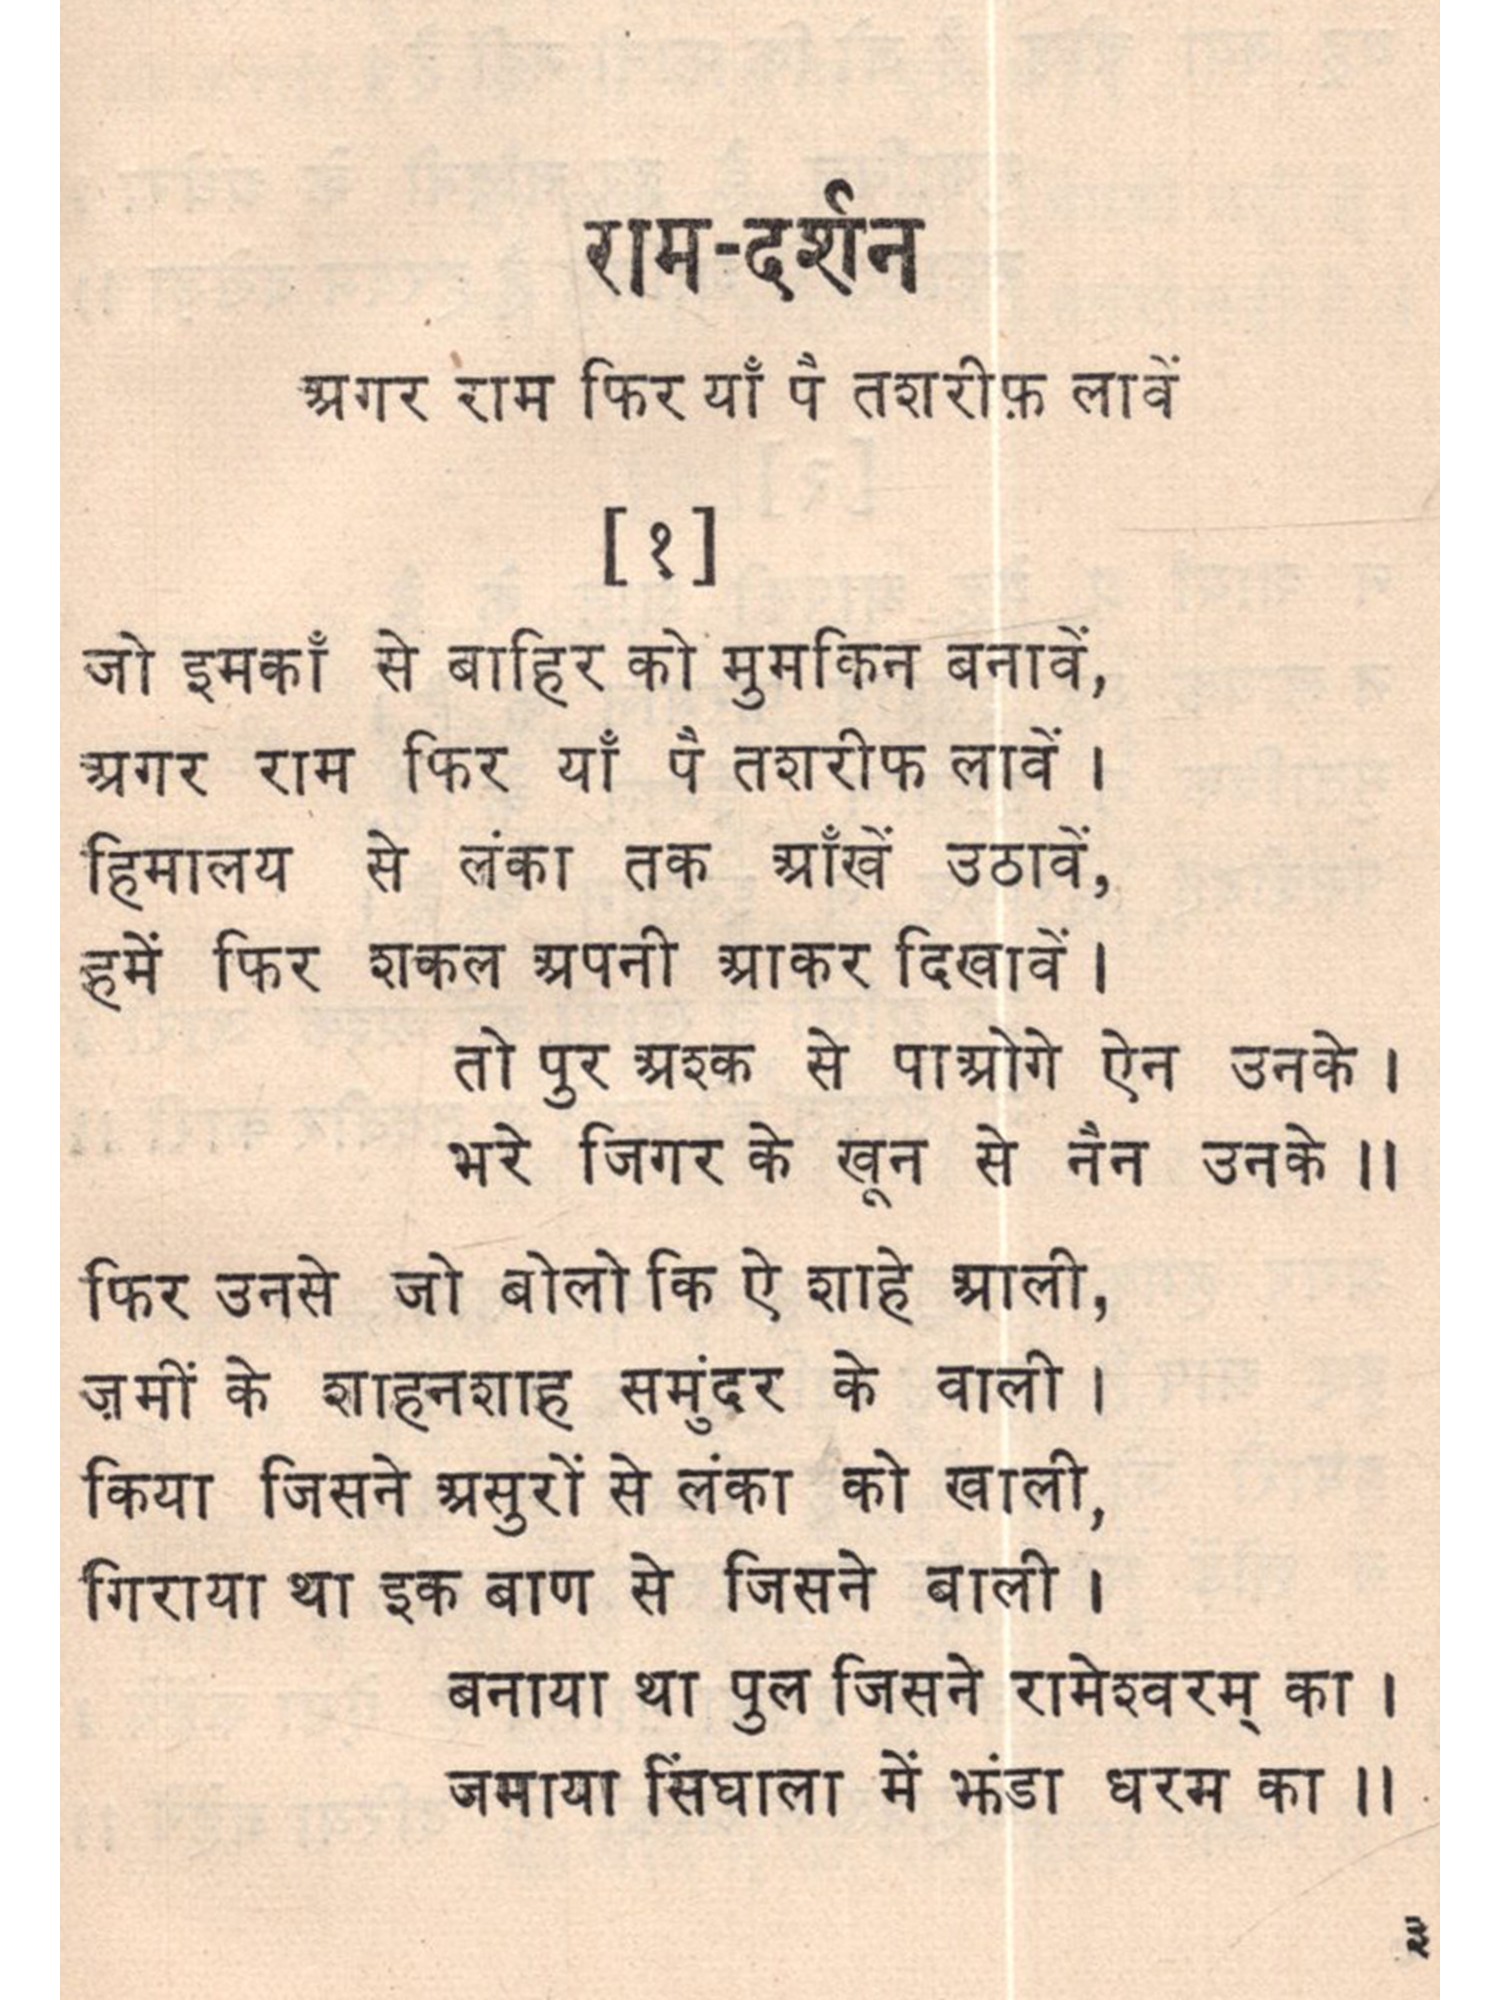 राम-दर्शन
अगर राम फिर याँ पै तशरीफ़ लावें
[१]
जो इमकाँ से बाहिर को मुमकिन बनावें,
अगर राम फिर याँ पै तशरीफ लावें।
हिमालय से लंका तक आँखें उठावें,
हमें फिर शकल अपनी आकर दिखावें।
तो पुर अश्क से पाओगे ऐन उनके।
भरे जिगर के खून से नैन उनके।।
फिर उनसे जो बोलो कि ऐ शाहे आली,
ज़मीं के शाहनशाह समुंदर के वाली।
किया जिसने असुरों से लंका को खाली,
गिराया था इक बाण से जिसने बाली।
बनाया था पुल जिसने रामेश्वरम् का।
जमाया सिंघाला में झंडा धरम का।।